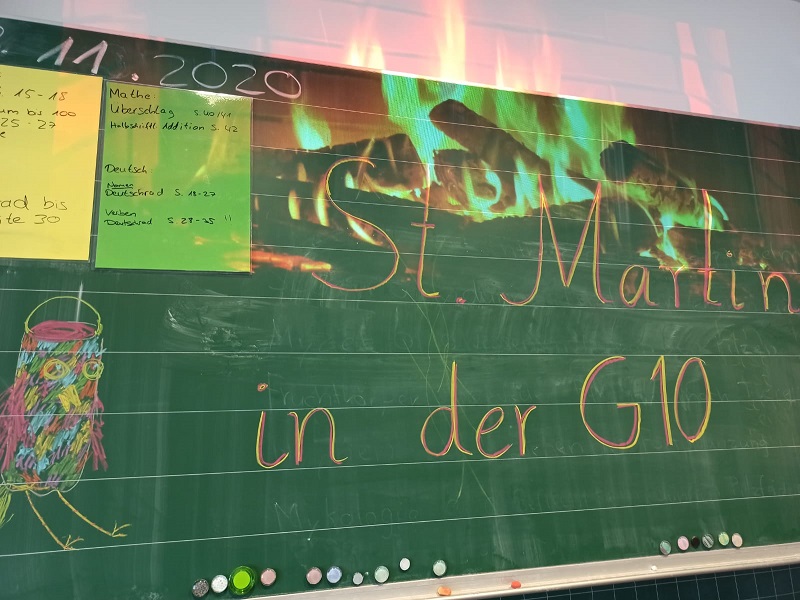 . 11. 2020
15-18
um bis 100
25-27
e
ad bis
ite 30
Mathe
Überschlag S. 40/41
Halbschriftl. Addition S. 42
Deutsch
Namen
Deutschrad S. 18-27
Verben
Deutschrad S. 28-35 !!
St. Martin
in der G10